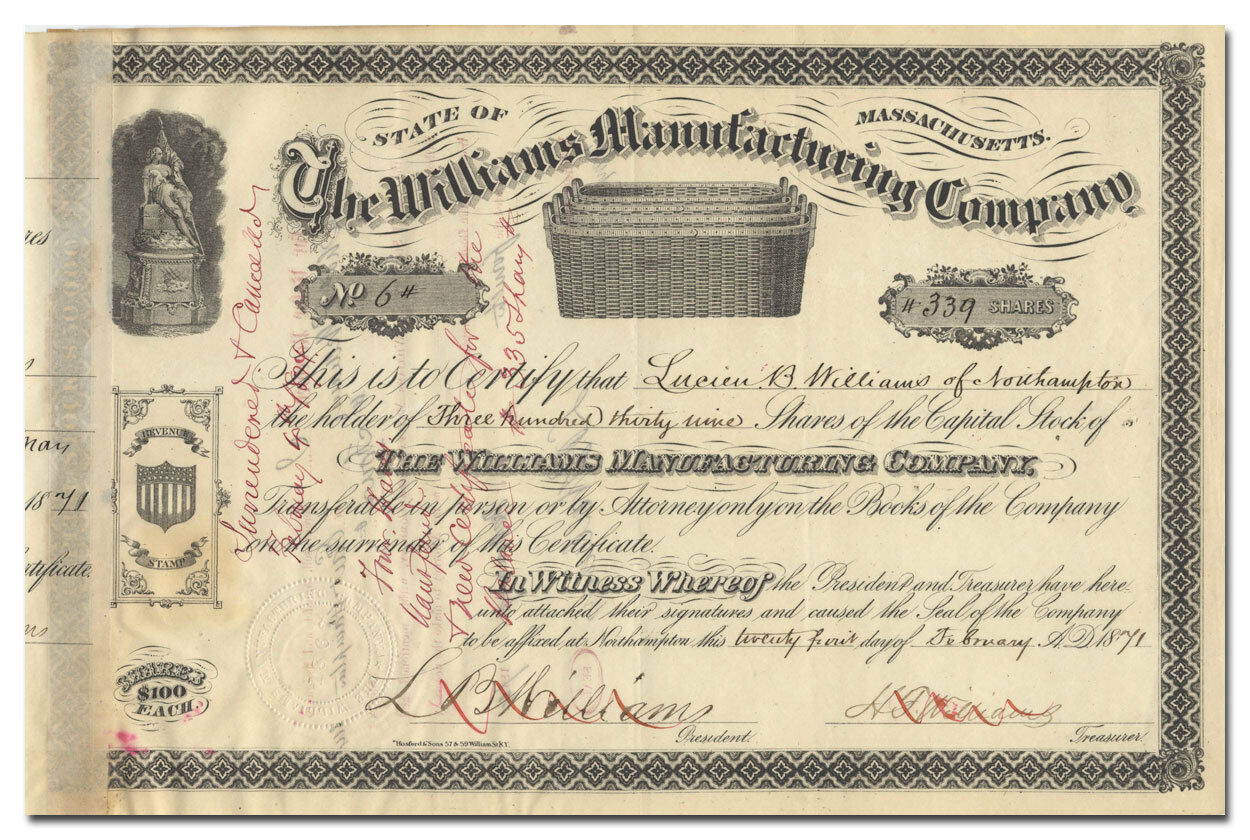 STATE OF MASSACHUSETTS.
The Williams Manufacturing Company
No 6 #
# 339 SHARES
This is to Certify that Lucien B Williams of Northampton
the holder of Three hundred thirty nine Shares of the Capital Stock of
THE WILLIAMS MANUFACTURING COMPANY,
Transferable in person or by Attorney only on the Books of the Company
on the surrender of this Certificate.
In Witness Whereof the President and Treasurer have here-
unto attached their signatures and caused the Seal of the Company
to be affixed at Northampton this twenty first day of February A.D. 1871
L B Williams
President.
Williams
Treasurer.
"Hosford & Sons 57 & 59 William St. N.Y.
REVENUE
STAMP
SHARES
$100
EACH
Surrendered & Cancelled
& new
335 Shares
1871
tificate.